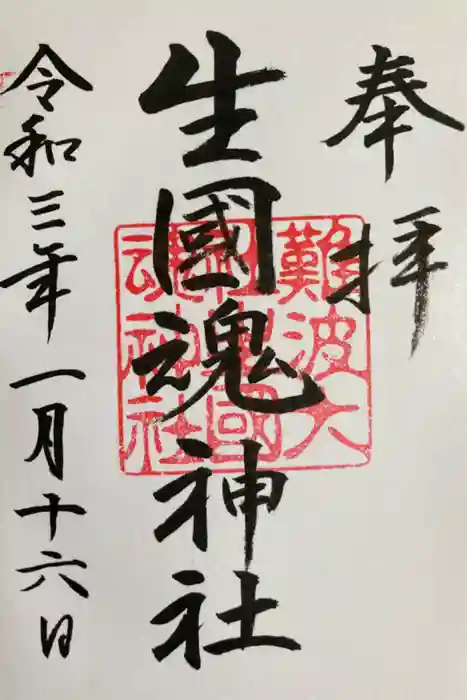 奉拝
生國魂神社
難波大
社生國
魂神社
令和三年一月十六日